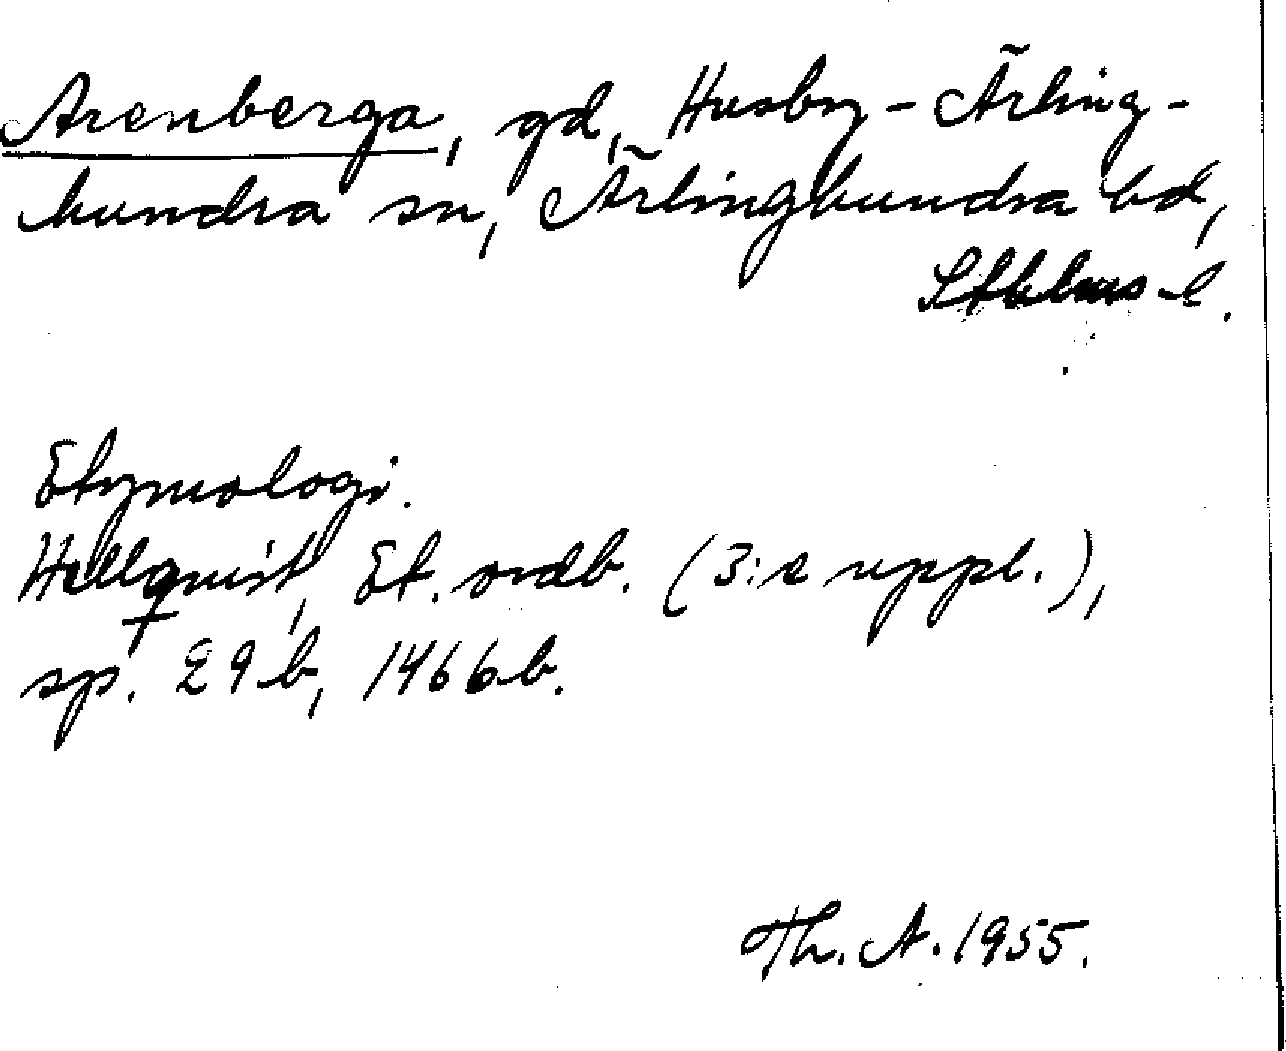 Arenberga, gd, Husby-Ärling-
hundra sn, Ärlinghundra hd,
Sthlms l.
Etymologi.
Hellquist, Et. ordb. (3:e uppl.),
sp. 29 b, 1466 b.
Th. A. 1955.